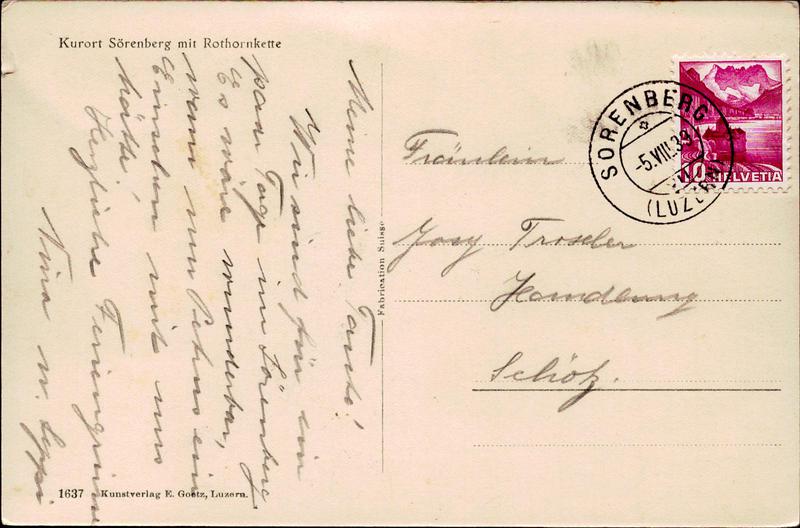 Kurort Sörenberg mit Rothornkette
Meine liebe Tante!
Wir sind für ein
paar Tage im Sörenberg.
Es wäre wunderbar,
wenn nur Petrus ein
Einsehen mit uns
hätte!
Herzliche Feriengrüsse
Nina u.
1637 Kunstverlag E. Goetz, Luzern.
Fabrication Suisse
SÖRENBERG
-5.VIII.39
(LUZERN)
10 HELVETIA
Fräulein
Josy Troxler
Handlung
Schötz.